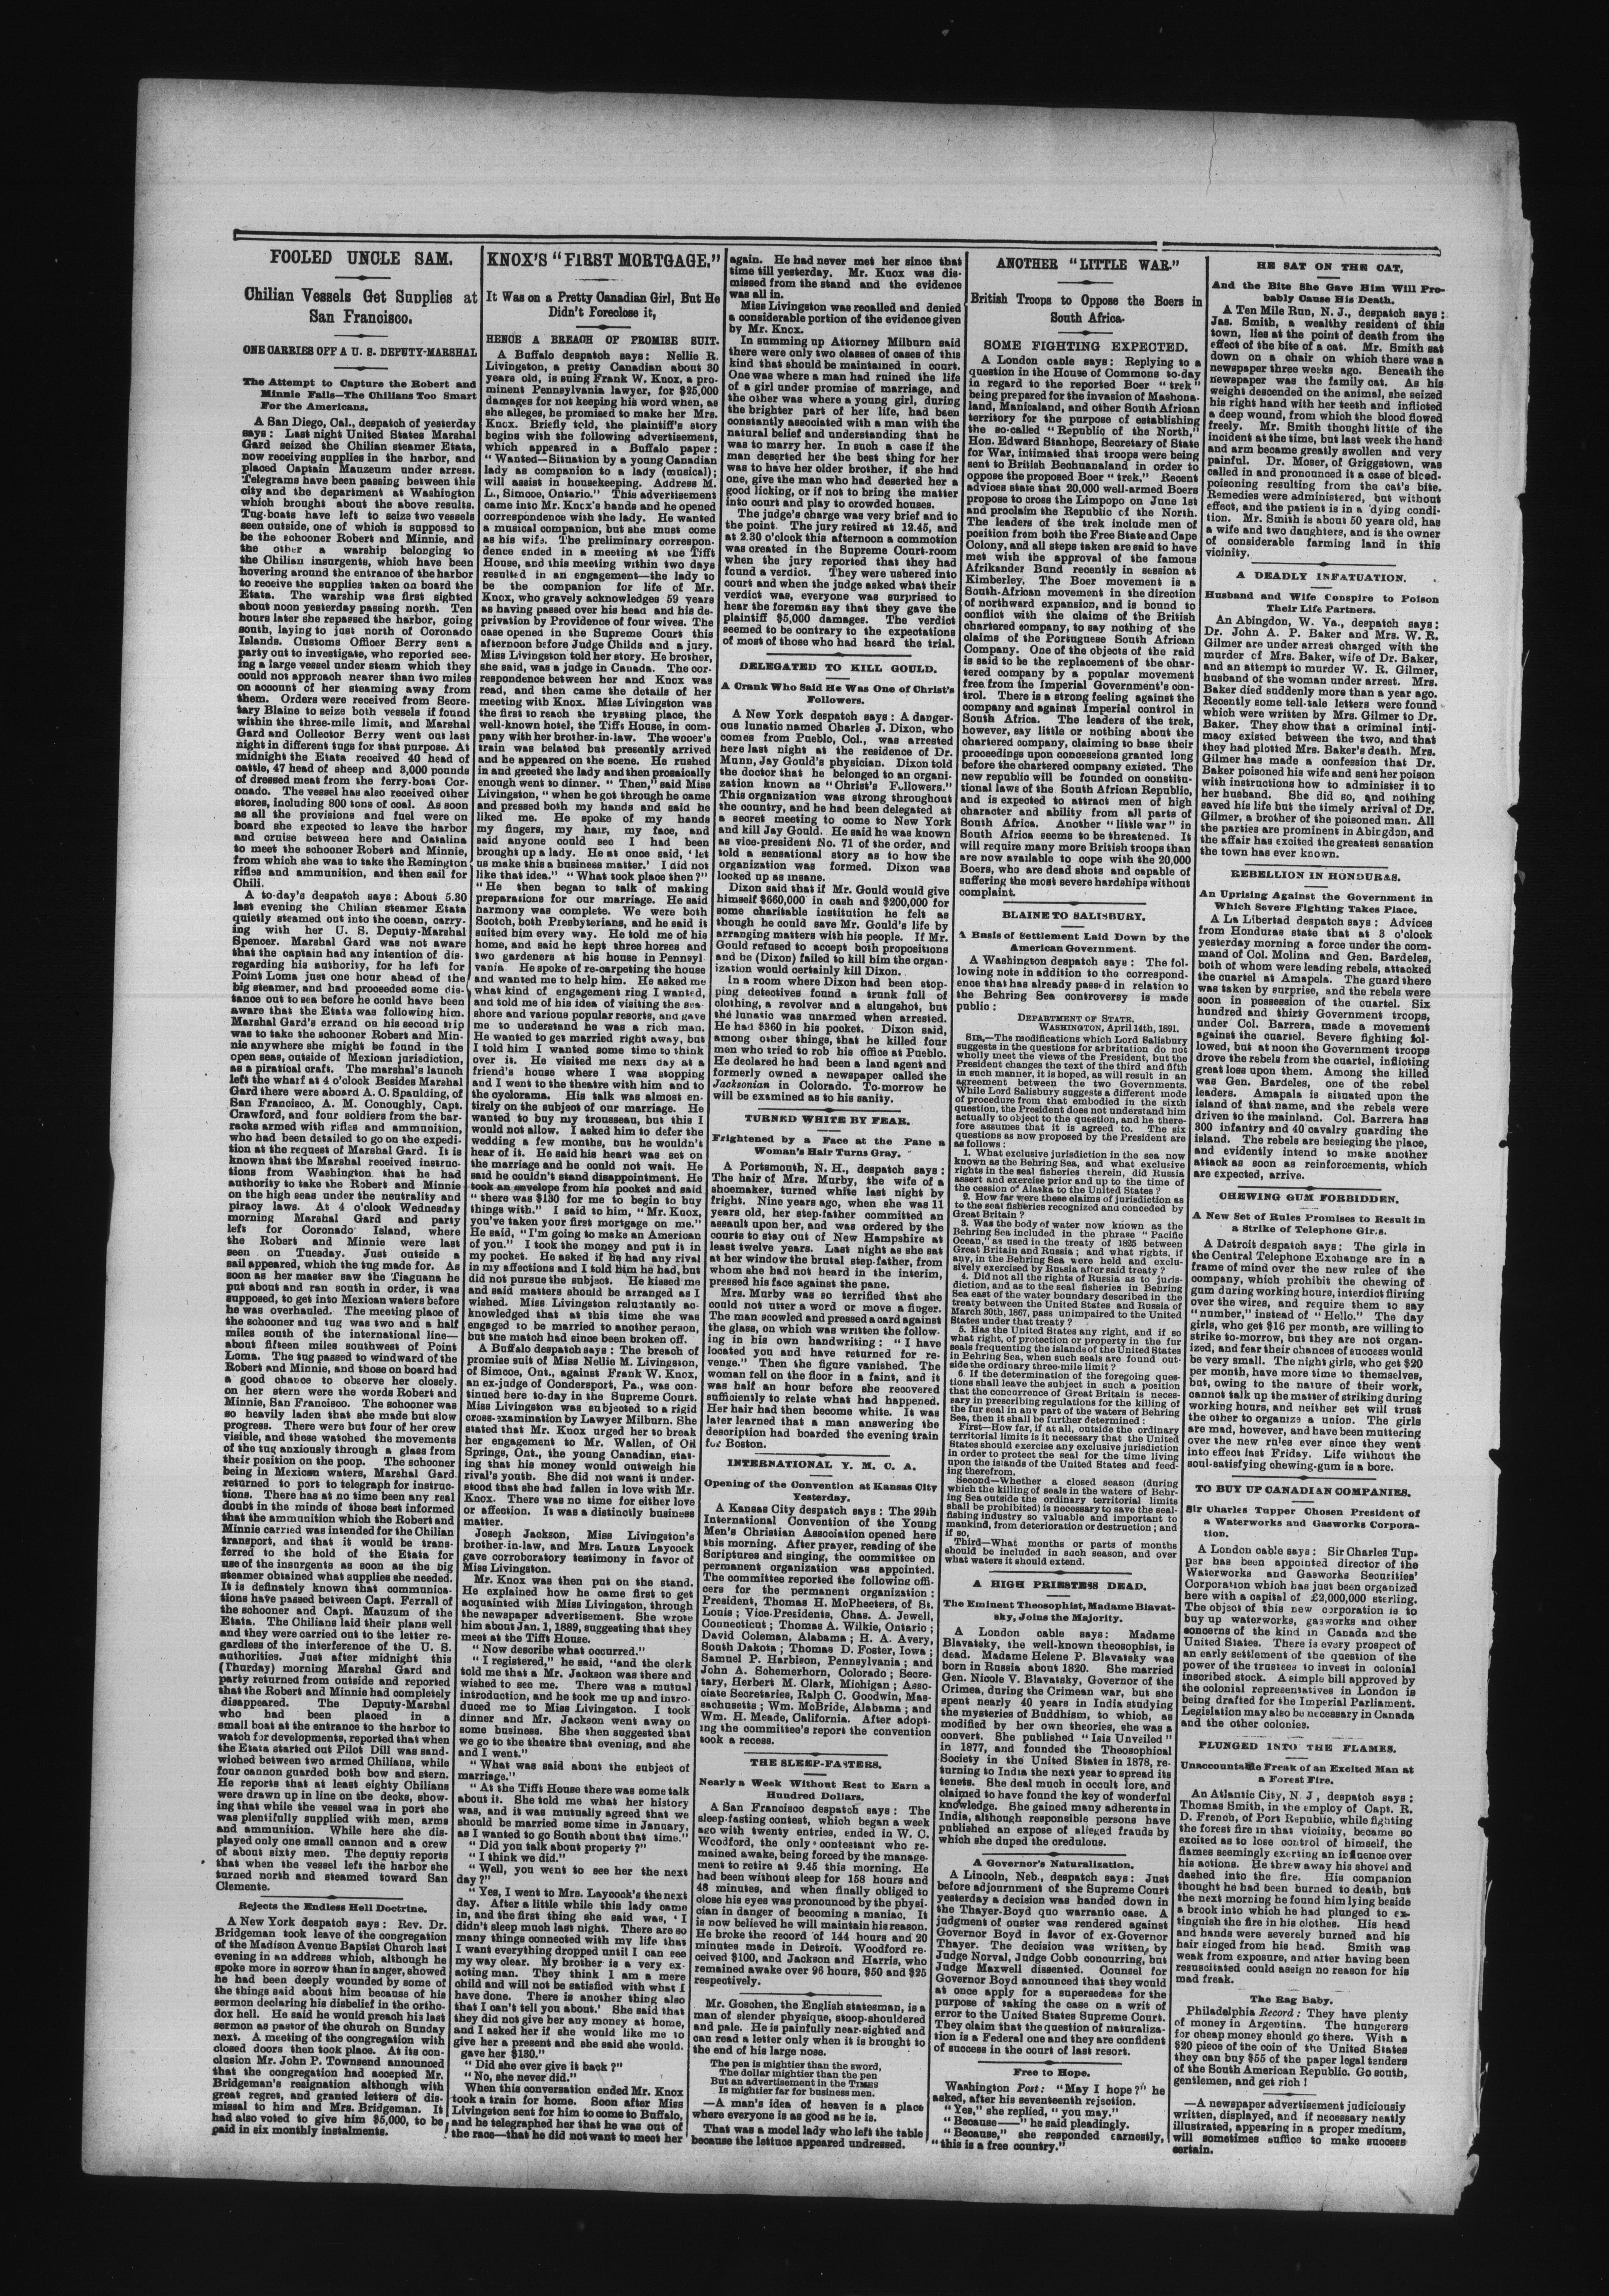 FOOLED UNCLE SAM.
Chilian Vessels Get Supplies at
San Francisco.
ONE CARRIES OFF A U. S. DEPUTY-MARSHAL
The Attempt to Capture the Robert and
Minnie Fails—The Chilians Too Smart
For the Americans.
A San Diego, Cal., despatch of yesterday
says: Last night United States Marshal
Gard seized the Chilian steamer Etata,
now receiving supplies in the harbor, and
placed Captain Manzeum under arrest.
Telegrams have been passing between this
city and the department at Washington
which brought about the above results.
Tug-boats have left to seize two vessels
seen outside, one of which is supposed to
be the schooner Robert and Minnie, and
the other a warship belonging to
the Chilian insurgents, which have been
hovering around the entrance of the harbor
to receive the supplies taken on board the
Etata. The warship was first sighted
about noon yesterday passing north. Ten
hours later she repassed the harbor, going
south, laying to just north of Coronado
Islands. Customs Officer Berry sent a
party out to investigate, who reported see-
ing a large vessel under steam which they
could not approach nearer than two miles
on account of her steaming away from
them. Orders were received from Secre-
tary Blaine to seize both vessels if found
within the three-mile limit, and Marshal
Gard and Collector Berry went out last
night in different tugs for that purpose. At
midnight the Etata received 40 head of
cattle, 47 head of sheep and 3,000 pounds
of dressed meat from the ferry-boat Cor-
onado. The vessel has also received other
stores, including 800 tons of coal. As soon
as all the provisions and fuel were on
board she expected to leave the harbor
and cruise between here and Catalina
to meet the schooner Robert and Minnie,
from which she was to take the Remington
rifles and ammunition, and then sail for
Chili.
A to-day's despatch says: About 5.30
last evening the Chilian steamer Etata
quietly steamed out into the ocean, carry-
ing with her U. S. Deputy-Marshal
Spencer. Marshal Gard was not aware
that the captain had any intention of dis-
regarding his authority, for he left for
Point Loma just one hour ahead of the
big steamer, and had proceeded some dis-
tance out to sea before he could have been
aware that the Etata was following him.
Marshal Gard's errand on his second trip
was to take the schooner Robert and Min-
nie anywhere she might be found in the
open seas, outside of Mexican jurisdiction,
as a piratical craft. The marshal's launch
left the wharf at 4 o'clock Besides Marshal
Gard there were aboard A. C. Spaulding, of
San Francisco, A. M. Conoughly, Capt.
Crawford, and four soldiers from the bar-
racks armed with rifles and ammunition,
who had been detailed to go on the expedi-
tion at the request of Marshal Gard. It is
known that the Marshal received instruc-
tions from Washington that he had
authority to take the Robert and Minnie
on the high seas under the neutrality and
piracy laws. At 4 o'clock Wednesday
morning Marshal Gard and party
left for Coronado Island, where
the Robert and Minnie were last
seen on Tuesday. Just outside a
sail appeared, which the tug made for. As
soon as her master saw the Tiaguana he
put about and ran south in order, it was
supposed, to get into Mexican waters before
he was overhauled. The meeting place of
the schooner and tug was two and a half
miles south of the international line—
about fifteen miles southwest of Point
Loma. The tug passed to windward of the
Robert and Minnie, and those on board had
a good chance to observe her closely.
on her stern were the words Robert and
Minnie, San Francisco. The schooner was
so heavily laden that she made but slow
progress. There were but four of her crew
visible, and these watched the movements
of the tug anxiously through a glass from
their position on the poop. The schooner
being in Mexican waters, Marshal Gard
returned to port to telegraph for instruc-
tions. There has at no time been any real
doubt in the minds of those best informed
that the ammunition which the Robert and
Minnie carried was intended for the Chilian
transport, and that it would be trans-
ferred to the hold of the Etata for
use of the insurgents as soon as the big
steamer obtained what supplies she needed.
It is definately known that communica-
tions have passed between Capt. Ferrall of
the schooner and Capt. Mauzum of the
Etata. The Chilians laid their plans well
and they were carried out to the letter re-
gardless of the interference of the U. S.
authorities. Just after midnight this
(Thurday) morning Marshal Gard and
party returned from outside and reported
that the Robert and Minnie had completely
disappeared. The Deputy-Marshal
who had been placed in a
small boat at the entrance to the harbor to
watch for developments, reported that when
the Etata started out Pilot Dill was sand-
wiched between two armed Chilians, while
four cannon guarded both bow and stern.
He reports that at least eighty Chilians
were drawn up in line on the decks, show-
ing that while the vessel was in port she
was plentifully supplied with men, arms
and ammunition. While here she dis-
played only one small cannon and a crew
of about sixty men. The deputy reports
that when the vessel left the harbor she
turned north and steamed toward San
Clemente.
Rejects the Endless Hell Doctrine.
A New York despatch says: Rev. Dr.
Bridgeman took leave of the congregation
of the Madison Avenue Baptist Church last
evening in an address which, although he
spoke more in sorrow than in anger, showed
he had been deeply wounded by some of
the things said about him because of his
sermon declaring his disbelief in the ortho-
dox hell. He said he would preach his last
sermon as pastor of the church on Sunday
next. A meeting of the congregation with
closed doors then took place. At its con-
clusion Mr. John P. Townsend announced
that the congregation had accepted Mr.
Bridgeman's resignation although with
great regret, and granted letters of dis-
missal to him and Mrs. Bridgeman. It
had also voted to give him $5,000, to be
paid in six monthly instalments.
KNOX'S "FIRST MORTGAGE."
It Was on a Pretty Canadian Girl, But He
Didn't Foreclose it,
HENCE A BREACH OF PROMISE SUIT.
A Buffalo despatch says: Nellie R.
Livingston, a pretty Canadian about 30
years old, is suing Frank W. Knox, a pro-
minent Pennsylvania lawyer, for $25,000
damages for not keeping his word when, as
she alleges, he promised to make her Mrs.
Knox. Briefly told, the plaintiff's story
begins with the following advertisement,
which appeared in a Buffalo paper:
"Wanted—Situation by a young Canadian
lady as companion to a lady (musical);
will assist in housekeeping. Address M.
L., Simcoe, Ontario." This advertisement
came into Mr. Knox's hands and he opened
correspondence with the lady. He wanted
a musical companion, but she must come
as his wife. The preliminary correspon-
dence ended in a meeting at the Tifft
House, and this meeting within two days
resulted in an engagement—the lady to
be the companion for life of Mr.
Knox, who gravely acknowledges 59 years
as having passed over his head and his de-
privation by Providence of four wives. The
case opened in the Supreme Court this
afternoon before Judge Childs and a jury.
Miss Livingston told her story. He brother,
she said, was a judge in Canada. The cor-
respondence between her and Knox was
read, and then came the details of her
meeting with Knox. Miss Livingston was
the first to reach the trysting place, the
well-known hotel, the Tifft House, in com-
pany with her brother-in-law. The wooer's
train was belated but presently arrived
and he appeared on the scene. He rushed
in and greeted the lady and then prosaically
enough went to dinner. "Then," said Miss
Livingston, "when he got through he came
and pressed both my hands and said he
liked me. He spoke of my hands
my fingers, my hair, my face, and
said anyone could see I had been
brought up a lady. He at once said, 'let
us make this a business matter.' I did not
like that idea." "What took place then?"
"He then began to talk of making
preparations for our marriage. He said
harmony was complete. We were both
Scotch, both Presbyterians, and he said it
suited him every way. He told me of his
home, and said he kept three horses and
two gardeners at his house in Pennsyl-
vania. He spoke of re-carpeting the house
and wanted me to help him. He asked me
what kind of engagement ring I wanted,
and told me of his idea of visiting the sea-
shore and various popular resorts, and gave
me to understand he was a rich man.
He wanted to get married right away, but
I told him I wanted some time to think
over it. He visited me next day at a
friend's house where I was stopping
and I went to the theatre with him and to
the cyclorama. His talk was almost en-
tirely on the subject of our marriage. He
wanted to buy my trousseau, but this I
would not allow. I asked him to defer the
wedding a few months, but he wouldn't
hear of it. He said his heart was set on
the marriage and he could not wait. He
said he couldn't stand disappointment. He
took an envelope from his pocket and said
"there was $130 for me to begin to buy
things with." I said to him, "Mr. Knox,
you've taken your first mortgage on me."
He said, "I'm going to make an American
of you." I took the money and put it in
my pocket. He asked if he had any rival
in my affections and I told him he had, but
did not pursue the subject. He kissed me
and said matters should be arranged as I
wished. Miss Livingston reluctantly ac-
knowledged that at this time she was
engaged to be married to another person,
but the match had since been broken off.
A Buffalo despatch says: The breach of
promise suit of Miss Nellie M. Livingston,
of Simcoe, Ont., against Frank W. Knox,
an ex-judge of Condersport, Pa., was con-
tinued here to-day in the Supreme Court.
Miss Livingston was subjected to a rigid
cross-examination by Lawyer Milburn. She
stated that Mr. Knox urged her to break
her engagement to Mr. Wallen, of Oil
Springs, Ont., the young Canadian, stat-
ing that his money would outweigh his
rival's youth. She did not want it under-
stood that she had fallen in love with Mr.
Knox. There was no time for either love
or affection. It was a distinctly business
matter.
Joseph Jackson, Miss Livingston's
brother-in-law, and Mrs. Laura Laycock
gave corroboratory testimony in favor of
Miss Livingston.
Mr. Knox was then put on the stand.
He explained how he came first to get
acquainted with Miss Livingston, through
the newspaper advertisement. She wrote
him about Jan. 1, 1889, suggesting that they
meet at the Tifft House.
"Now describe what occurred."
"I registered," he said, "and the clerk
told me that a Mr. Jackson was there and
wished to see me. There was a mutual
introduction, and he took me up and intro-
duced me to Miss Livingston. I took
dinner and Mr. Jackson went away on
some business. She then suggested that
we go to the theatre that evening, and she
and I went."
"What was said about the subject of
marriage."
"At the Tifft House there was some talk
about it. She told me what her history
was, and it was mutually agreed that we
should be married some time in January,
as I wanted to go South about that time."
"Did you talk about property?"
"I think we did."
"Well, you went to see her the next
day?"
"Yes, I went to Mrs. Laycock's the next
day. After a little while this lady came
in, and the first thing she said was, 'I
didn't sleep much last night. There are so
many things connected with my life that
I want everything dropped until I can see
my way clear. My brother is a very ex-
acting man. They think I am a mere
child and will not be satisfied with what I
have done. There is another thing also
that I can't tell you about.' She said that
they did not give her any money at home,
and I asked her if she would like me to
give her a present and she said she would.
gave her $130."
"Did she ever give it back?"
"No, she never did."
When this conversation ended Mr. Knox
took a train for home. Soon after Miss
Livingston sent for him to come to Buffalo,
and he telegraphed her that he was out of
the race—that he did not want to meet her
again. He had never met her since that
time till yesterday. Mr. Knox was dis-
missed from the stand and the evidence
was all in.
Miss Livingston was recalled and denied
a considerable portion of the evidence given
by Mr. Knox.
In summing up Attorney Milburn said
there were only two classes of cases of this
kind that should be maintained in court.
One was where a man had ruined the life
of a girl under promise of marriage, and
the other was where a young girl, during
the brighter part of her life, had been
constantly associated with a man with the
natural belief and understanding that he
was to marry her. In such a case if the
man deserted her the best thing for her
was to have her older brother, if she had
one, give the man who had deserted her a
good licking, or if not to bring the matter
into court and play to crowded houses.
The judge's charge was very brief and to
the point. The jury retired at 12.45, and
at 2.30 o'clock this afternoon a commotion
was created in the Supreme Court-room
when the jury reported that they had
found a verdict. They were ushered into
court and when the judge asked what their
verdict was, everyone was surprised to
hear the foreman say that they gave the
plaintiff $5,000 damages. The verdict
seemed to be contrary to the expectations
of most of those who had heard the trial.
DELEGATED TO KILL GOULD.
A Crank Who Said He Was One of Christ's
Followers.
A New York despatch says: A danger-
ous lunatic named Charles J. Dixon, who
comes from Pueblo, Col., was arrested
here last night at the residence of Dr.
Munn, Jay Gould's physician. Dixon told
the doctor that he belonged to an organi-
zation known as "Christ's Followers."
This organization was strong throughout
the country, and he had been delegated at
a secret meeting to come to New York
and kill Jay Gould. He said he was known
as vice-president No. 71 of the order, and
told a sensational story as to how the
organization was formed. Dixon was
locked up as insane.
Dixon said that if Mr. Gould would give
himself $660,000 in cash and $200,000 for
some charitable institution he felt as
though he could save Mr. Gould's life by
arranging matters with his people. If Mr.
Gould refused to accept both propositions
and he (Dixon) failed to kill him the organ-
ization would certainly kill Dixon.
In a room where Dixon had been stop-
ping detectives found a trunk full of
clothing, a revolver and a slungshot, but
the lunatic was unarmed when arrested.
He had $360 in his pocket. Dixon said,
among other things, that he killed four
men who tried to rob his office at Pueblo.
He declared he had been a land agent and
formerly owned a newspaper called the
Jacksonian in Colorado. To-morrow he
will be examined as to his sanity.
TURNED WHITE BY FEAR.
Frightened by a Face at the Pane a
Woman's Hair Turns Gray.
A Portsmouth, N. H., despatch says:
The hair of Mrs. Murby, the wife of a
shoemaker, turned white last night by
fright. Nine years ago, when she was 11
years old, her step-father committed an
assault upon her, and was ordered by the
courts to stay out of New Hampshire at
least twelve years. Last night as she sat
at her window the brutal step-father, from
whom she had not heard in the interim,
pressed his face against the pane.
Mrs. Murby was so terrified that she
could not utter a word or move a finger.
The man scowled and pressed a card against
the glass, on which was written the follow-
ing in his own handwriting: "I have
located you and have returned for re-
venge." Then the figure vanished. The
woman fell on the floor in a faint, and it
was half an hour before she recovered
sufficiently to relate what had happened.
Her hair had then become white. It was
later learned that a man answering the
description had boarded the evening train
for Boston.
INTERNATIONAL Y. M. C. A.
Opening of the Convention at Kansas City
Yesterday.
A Kansas City despatch says: The 29th
International Convention of the Young
Men's Christian Association opened here
this morning. After prayer, reading of the
Scriptures and singing, the committee on
permanent organization was appointed.
The committee reported the following offi-
cers for the permanent organization:
President, Thomas H. McPheeters, of St.
Louis; Vice-Presidents, Chas. A. Jewell,
Connecticut; Thomas A. Wilkie, Ontario;
David Coleman, Alabama; H. A. Avery,
South Dakota; Thomas D. Foster, Iowa;
Samuel P. Harbison, Pennsylvania; and
John A. Schemerhorn, Colorado; Secre-
tary, Herbert M. Clark, Michigan; Asso-
ciate Secretaries, Ralph C. Goodwin, Mas-
sachusetts; Wm. McBride, Alabama; and
Wm. H. Meade, California. After adopt-
ing the committee's report the convention
took a recess.
THE SLEEP-FASTERS.
Nearly a Week Without Rest to Earn a
Hundred Dollars.
A San Francisco despatch says: The
sleep-fasting contest, which began a week
ago with twenty entries, ended in W. C.
Woodford, the only contestant who re-
mained awake, being forced by the manage-
ment to retire at 9.45 this morning. He
had been without sleep for 158 hours and
48 minutes, and when finally obliged to
close his eyes was pronounced by the physi-
cian in danger of becoming a maniac. It
is now believed he will maintain his reason.
He broke the record of 144 hours and 20
minutes made in Detroit. Woodford re-
ceived $100, and Jackson and Harris, who
remained awake over 96 hours, $50 and $25
respectively.
Mr. Goschen, the English statesman, is a
man of slender physique, stoop-shouldered
and pale. He is painfully near-sighted and
can read a letter only when it is brought to
the end of his large nose.
The pen is mightier than the sword,
The dollar mightier than the pen
But an advertisement in the TIMES
Is mightier far for business men.
—A man's idea of heaven is a place
where everyone is as good as he is.
That was a model lady who left the table
because the lettuce appeared undressed.
ANOTHER "LITTLE WAR."
British Troops to Oppose the Boers in
South Africa.
SOME FIGHTING EXPECTED.
A London cable says: Replying to a
question in the House of Commons to-day
in regard to the reported Boer "trek"
being prepared for the invasion of Mashona-
land, Manicaland, and other South African
territory for the purpose of establishing
the so-called "Republic of the North,"
Hon. Edward Stanhope, Secretary of State
for War, intimated that troops were being
sent to British Bechuanaland in order to
oppose the proposed Boer "trek." Recent
advices state that 20,000 well-armed Boers
propose to cross the Limpopo on June 1st
and proclaim the Republic of the North.
The leaders of the trek include men of
position from both the Free State and Cape
Colony, and all steps taken are said to have
met with the approval of the famous
Afrikander Bund recently in session at
Kimberley. The Boer movement is a
South-African movement in the direction
of northward expansion, and is bound to
conflict with the claims of the British
chartered company, to say nothing of the
claims of the Portuguese South African
Company. One of the objects of the raid
is said to be the replacement of the char-
tered company by a popular movement
free from the Imperial Government's con-
trol. There is a strong feeling against the
company and against Imperial control in
South Africa. The leaders of the trek,
however, say little or nothing about the
chartered company, claiming to base their
proceedings upon concessions granted long
before the chartered company existed. The
new republic will be founded on constitu-
tional laws of the South African Republic,
and is expected to attract men of high
character and ability from all parts of
South Africa. Another "little war" in
South Africa seems to be threatened. It
will require many more British troops than
are now available to cope with the 20,000
Boers, who are dead shots and capable of
suffering the most severe hardships without
complaint.
BLAINE TO SALISBURY.
A Basis of Settlement Laid Down by the
American Government.
A Washington despatch says: The fol-
lowing note in addition to the correspond-
ence that has already passed in relation to
the Behring Sea controversy is made
public:
DEPARTMENT OF STATE.
WASHINGTON, April 14th, 1891.
SIR,—The modifications which Lord Salisbury
suggests in the questions for arbritation do not
wholly meet the views of the President, but the
President changes the text of the third and fifth
in such manner, it is hoped, as will result in an
agreement between the two Governments.
While Lord Salisbury suggests a different mode
of procedure from that embodied in the sixth
question, the President does not understand him
actually to object to the question, and he there-
fore assumes that it is agreed to. The six
questions as now proposed by the President are
as follows:
1. What exclusive jurisdiction in the sea now
known as the Behring Sea, and what exclusive
rights in the seal fisheries therein, did Russia
assert and exercise prior and up to the time of
the cession of Alaska to the United States?
2. How far were these claims of jurisdiction as
to the seal fisheries recognized and conceded by
Great Britain?
3. Was the body of water now known as the
Behring Sea included in the phrase "Pacific
Ocean," as used in the treaty of 1825 between
Great Britain and Russia; and what rights, if
any, in the Behring Sea were held and exclu-
sively exercised by Russia after said treaty?
4. Did not all the rights of Russia as to juris-
diction, and as to the seal fisheries in Behring
Sea east of the water boundary described in the
treaty between the United States and Russia of
March 30th, 1867, pass unimpaired to the United
States under that treaty?
5. Has the United States any right, and if so
what right, of protection or property in the fur
seals frequenting the islands of the United States
in Behring Sea, when such seals are found out-
side the ordinary three-mile limit?
6. If the determination of the foregoing ques-
tions shall leave the subject in such a position
that the concurrence of Great Britain is neces-
sary in prescribing regulations for the killing of
the fur seal in any part of the waters of Behring
Sea, then it shall be further determined:
First—How far, if at all, outside the ordinary
territorial limits is it necessary that the United
States should exercise any exclusive jurisdiction
in order to protect the seal for the time living
upon the islands of the United States and feed-
ing therefrom.
Second—Whether a closed season (during
which the killing of seals in the waters of Behr-
ing Sea outside the ordinary territorial limits
shall be prohibited) is necessary to save the seal-
fishing industry so valuable and important to
mankind, from deterioration or destruction; and
if so,
Third—What months or parts of months
should be included in such season, and over
what waters it should extend.
A HIGH PRIESTESS DEAD.
The Eminent Theosophist, Madame Blavat-
sky, Joins the Majority.
A London cable says: Madame
Blavatsky, the well-known theosophist, is
dead. Madame Helene P. Blavatsky was
born in Russia about 1820. She married
Gen. Nicole V. Blavatsky, Governor of the
Crimea, during the Crimean war, but she
spent nearly 40 years in India studying
the mysteries of Buddhism, to which, as
modified by her own theories, she was a
convert. She published "Isis Unveiled"
in 1877, and founded the Theosophical
Society in the United States in 1878, re-
turning to India the next year to spread its
tenets. She deal much in occult lore, and
claimed to have found the key of wonderful
knowledge. She gained many adherents in
India, although responsible persons have
published an expose of alleged frauds by
which she duped the credulous.
A Governor's Naturalization.
A Lincoln, Neb., despatch says: Just
before adjournment of the Supreme Court
yesterday a decision was handed down in
the Thayer-Boyd quo warranto case. A
judgment of ouster was rendered against
Governor Boyd in favor of ex-Governor
Thayer. The decision was written by
Judge Norval, Judge Cobb concurring, but
Judge Maxwell dissented. Counsel for
Governor Boyd announced that they would
at once apply for a supersedeas for the
purpose of taking the case on a writ of
error to the United States Supreme Court.
They claim that the question of naturaliza-
tion is a Federal one and they are confident
of success in the court of last resort.
Free to Hope.
Washington Post: "May I hope?" he
asked, after his seventeenth rejection.
"Yes," she replied, "you may."
"Because——" he said pleadingly.
"Because," she responded earnestly,
"this is a free country."
HE SAT ON THE CAT,
And the Bite She Gave Him Will Pro-
bably Cause His Death.
A Ten Mile Run, N. J., despatch says:
Jas. Smith, a wealthy resident of this
town, lies at the point of death from the
effect of the bite of a cat. Mr. Smith sat
down on a chair on which there was a
newspaper three weeks ago. Beneath the
newspaper was the family cat. As his
weight descended on the animal, she seized
his right hand with her teeth and inflicted
a deep wound, from which the blood flowed
freely. Mr. Smith thought little of the
incident at the time, but last week the hand
and arm became greatly swollen and very
painful. Dr. Moser, of Griggstown, was
called in and pronounced it a case of blood-
poisoning resulting from the cat's bite.
Remedies were administered, but without
effect, and the patient is in a dying condi-
tion. Mr. Smith is about 50 years old, has
a wife and two daughters, and is the owner
of considerable farming land in this
vicinity.
A DEADLY INFATUATION.
Husband and Wife Conspire to Poison
Their Life Partners.
An Abingdon, W. Va., despatch says:
Dr. John A. P. Baker and Mrs. W. R.
Gilmer are under arrest charged with the
murder of Mrs. Baker, wife of Dr. Baker,
and an attempt to murder W. R. Gilmer,
husband of the woman under arrest. Mrs.
Baker died suddenly more than a year ago.
Recently some tell-tale letters were found
which were written by Mrs. Gilmer to Dr.
Baker. They show that a criminal inti-
macy existed between the two, and that
they had plotted Mrs. Baker's death. Mrs.
Gilmer has made a confession that Dr.
Baker poisoned his wife and sent her poison
with instructions how to administer it to
her husband. She did so, and nothing
saved his life but the timely arrival of Dr.
Gilmer, a brother of the poisoned man. All
the parties are prominent in Abingdon, and
the affair has excited the greatest sensation
the town has ever known.
REBELLION IN HONDURAS.
An Uprising Against the Government in
Which Severe Fighting Takes Place.
A La Libertad despatch says: Advices
from Honduras state that at 3 o'clock
yesterday morning a force under the com-
mand of Col. Molina and Gen. Bardeles,
both of whom were leading rebels, attacked
the cuartel at Amapela. The guard there
was taken by surprise, and the rebels were
soon in possession of the cuartel. Six
hundred and thirty Government troops,
under Col. Barrera, made a movement
against the cuartel. Severe fighting fol-
lowed, but at noon the Government troops
drove the rebels from the cuartel, inflicting
great loss upon them. Among the killed
was Gen. Bardeles, one of the rebel
leaders. Amapala is situated upon the
island of that name, and the rebels were
driven to the mainland. Col. Barrera has
300 infantry and 40 cavalry guarding the
island. The rebels are besieging the place,
and evidently intend to make another
attack as soon as reinforcements, which
are expected, arrive.
CHEWING GUM FORBIDDEN.
A New Set of Rules Promises to Result in
a Strike of Telephone Girls.
A Detroit despatch says: The girls in
the Central Telephone Exchange are in a
frame of mind over the new rules of the
company, which prohibit the chewing of
gum during working hours, interdict flirting
over the wires, and require them to say
"number," instead of "Hello." The day
girls, who get $16 per month, are willing to
strike to-morrow, but they are not organ-
ized, and fear their chances of success would
be very small. The night girls, who get $20
per month, have more time to themselves,
but, owing to the nature of their work,
cannot talk up the matter of striking during
working hours, and neither set will trust
the other to organize a union. The girls
are mad, however, and have been muttering
over the new rules ever since they went
into effect last Friday. Life without the
soul-satisfying chewing-gum is a bore.
TO BUY UP CANADIAN COMPANIES.
Sir Charles Tupper Chosen President of
a Waterworks and Gasworks Corpora-
tion.
A London cable says: Sir Charles Tup-
per has been appointed director of the
Waterworks and Gasworks Securities'
Corporation which has just been organized
here with a capital of £2,000,000 sterling.
The object of this new corporation is to
buy up waterworks, gasworks and other
concerns of the kind in Canada and the
United States. There is every prospect of
an early settlement of the question of the
power of the trustees to invest in colonial
inscribed stock. A simple bill approved by
the colonial representatives in London is
being drafted for the Imperial Parliament.
Legislation may also be necessary in Canada
and the other colonies.
PLUNGED INTO THE FLAMES.
Unaccountable Freak of an Excited Man at
a Forest Fire.
An Atlantic City, N. J., despatch says:
Thomas Smith, in the employ of Capt. R.
D. French, of Port Republic, while fighting
the forest fire in that vicinity, became so
excited as to lose control of himself, the
flames seemingly exerting an influence over
his actions. He threw away his shovel and
dashed into the fire. His companion
thought he had been burned to death, but
the next morning he found him lying beside
a brook into which he had plunged to ex-
tinguish the fire in his clothes. His head
and hands were severely burned and his
hair singed from his head. Smith was
weak from exposure, and after having been
resuscitated could assign no reason for his
mad freak.
The Rag Baby.
Philadelphia Record: They have plenty
of money in Argentina. The hungerers
for cheap money should go there. With a
$20 piece of the coin of the United States
they can buy $55 of the paper legal tenders
of the South American Republic. Go south,
gentlemen, and get rich!
—A newspaper advertisement judiciously
written, displayed, and if necessary neatly
illustrated, appearing in a proper medium,
will sometimes suffice to make success
certain.